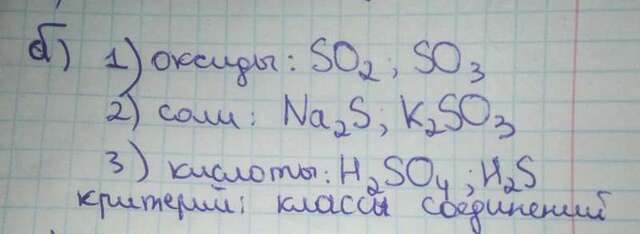 б) 1) оксиды: SO₂; SO₃
2) соли: Na₂S; K₂SO₃
3) кислоты: H₂SO₄; H₂S
критерий: классы соединений